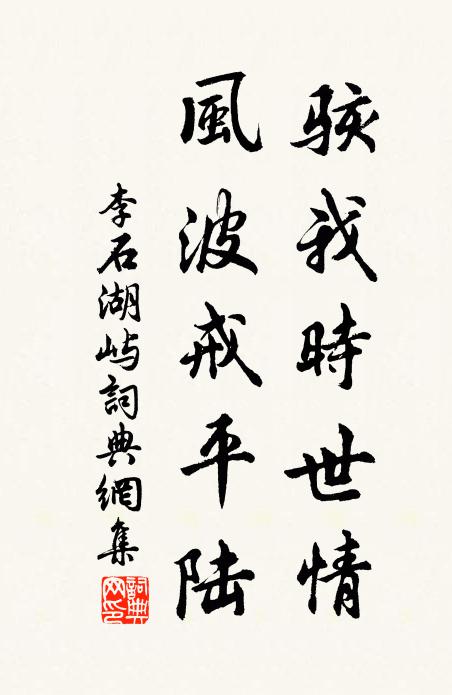 骇我時世情
風波戒平陆
李石湖屿詞典網集
詞典網印